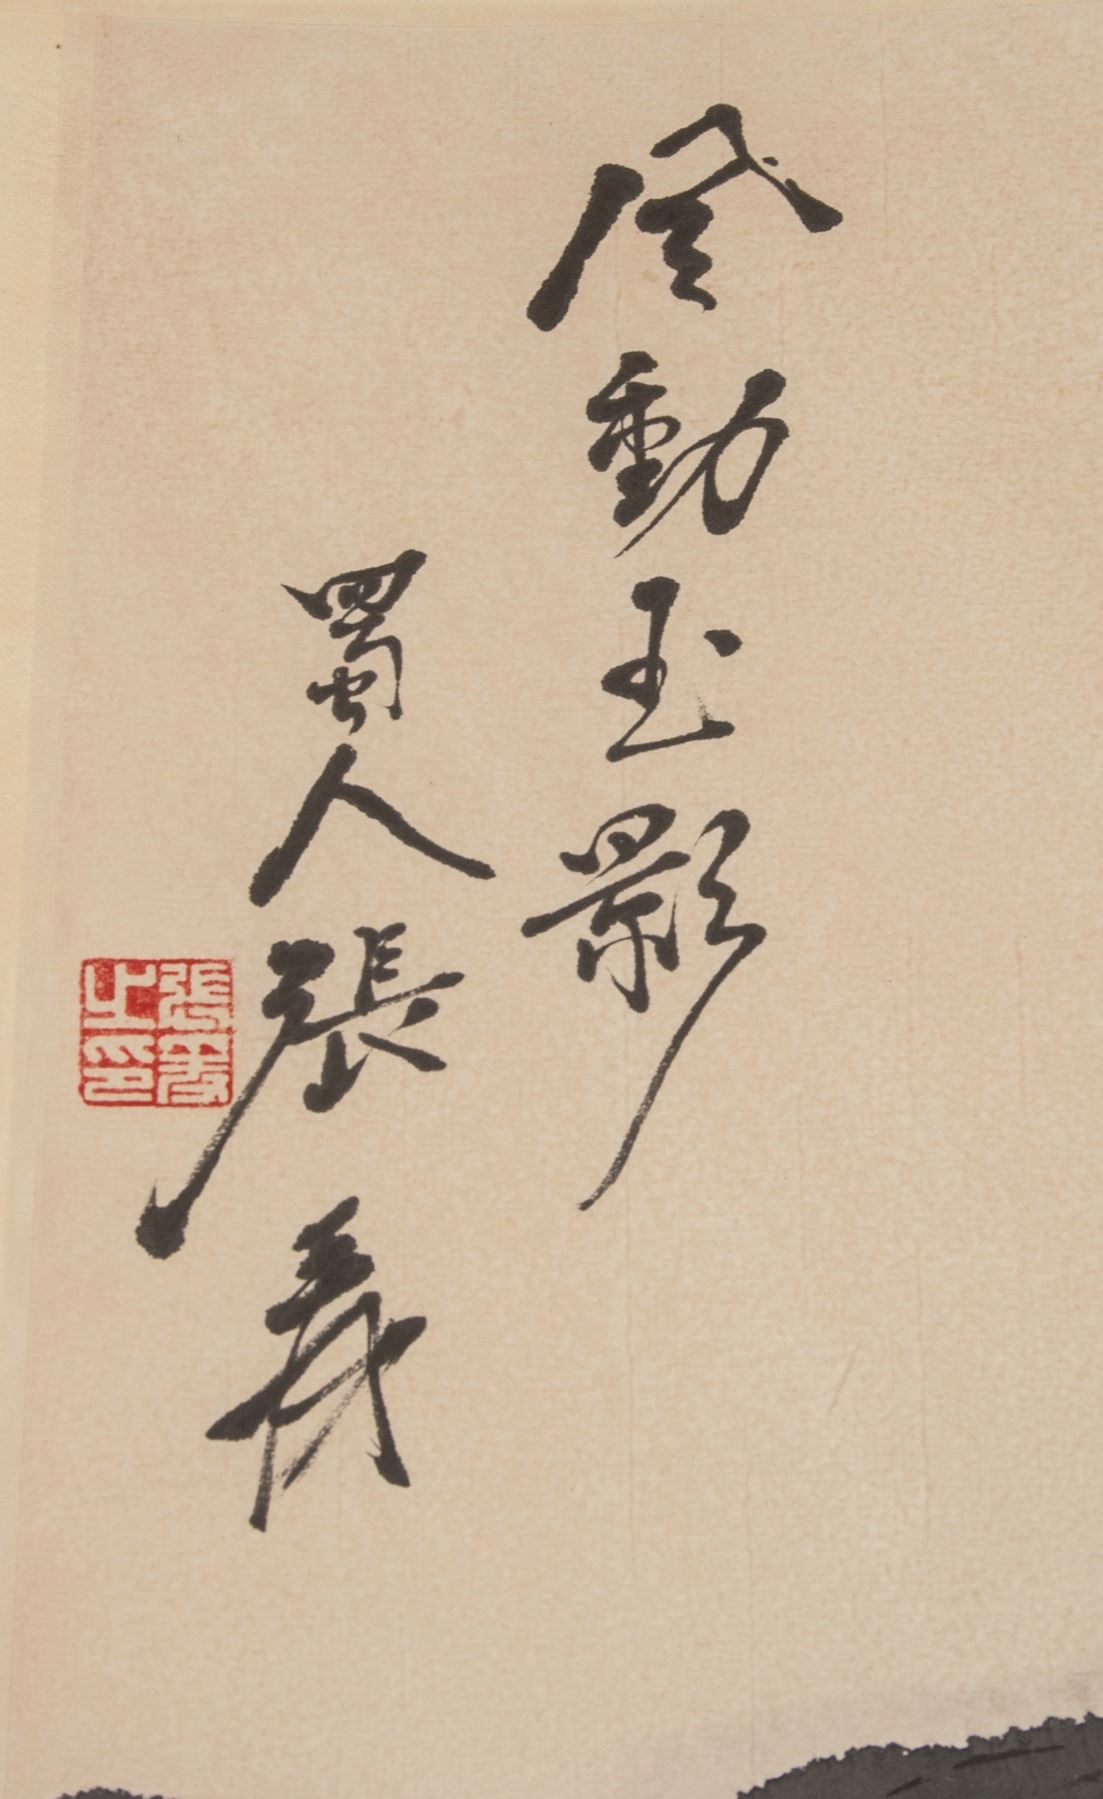 風動玉影
蜀人張爰
張爰之印